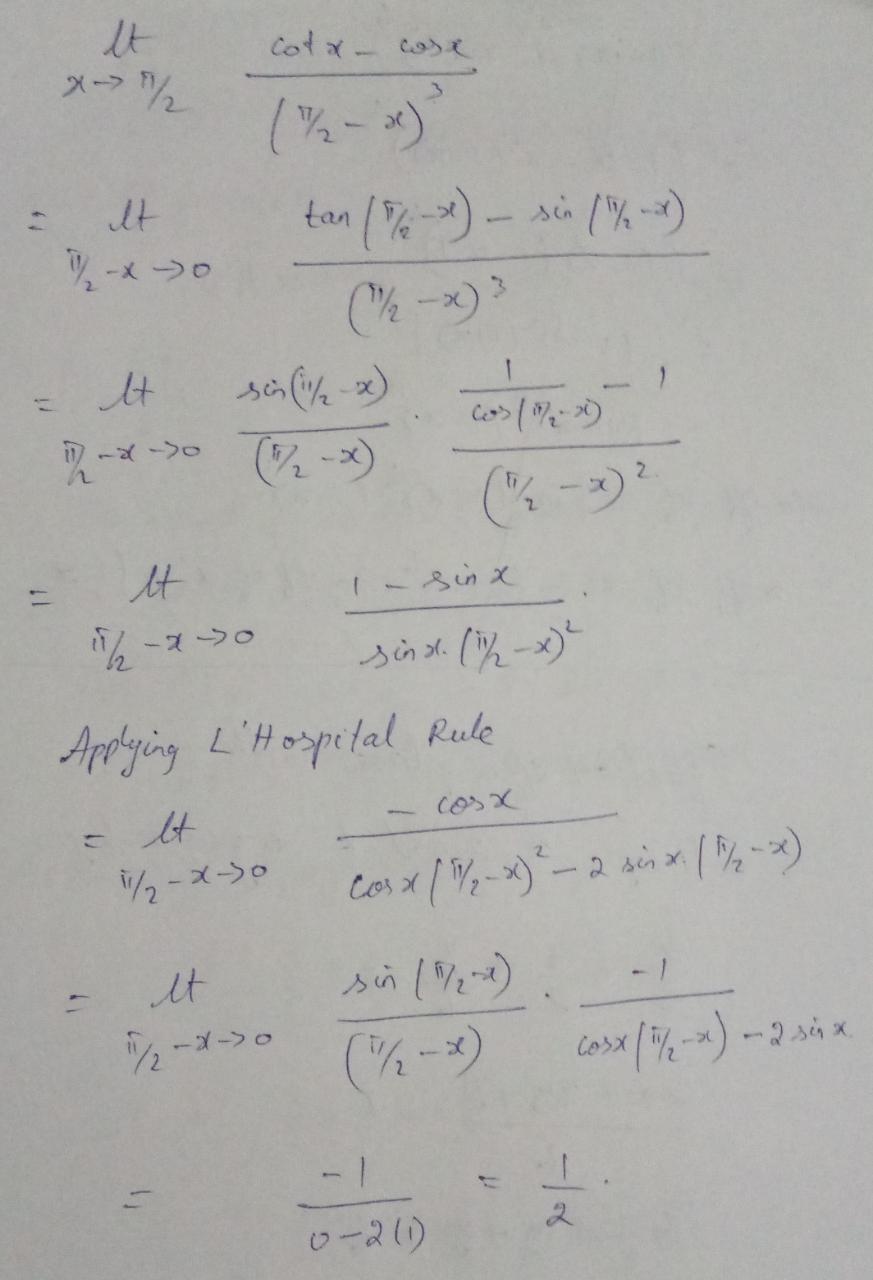 lt x→π/2 (cot x - cos x) / (π/2 - x)³
= lt π/2 - x →0 (tan (π/2 - x) - sin (π/2 - x)) / (π/2 - x)³
= lt π/2 - x →0 sin(π/2 - x) / (π/2 - x) . (1 / cos(π/2 - x) - 1) / (π/2 - x)²
= lt π/2 - x →0 (1 - sin x) / (sin x. (π/2 - x)²) .
Applying L'Hospital Rule
= lt π/2 - x →0 - cos x / (cos x (π/2 - x)² - 2 sin x. (π/2 - x))
= lt π/2 - x →0 sin (π/2 - x) / (π/2 - x) . -1 / (cos x (π/2 - x) - 2 sin x)
= -1 / (0 - 2(1)) = 1/2 .